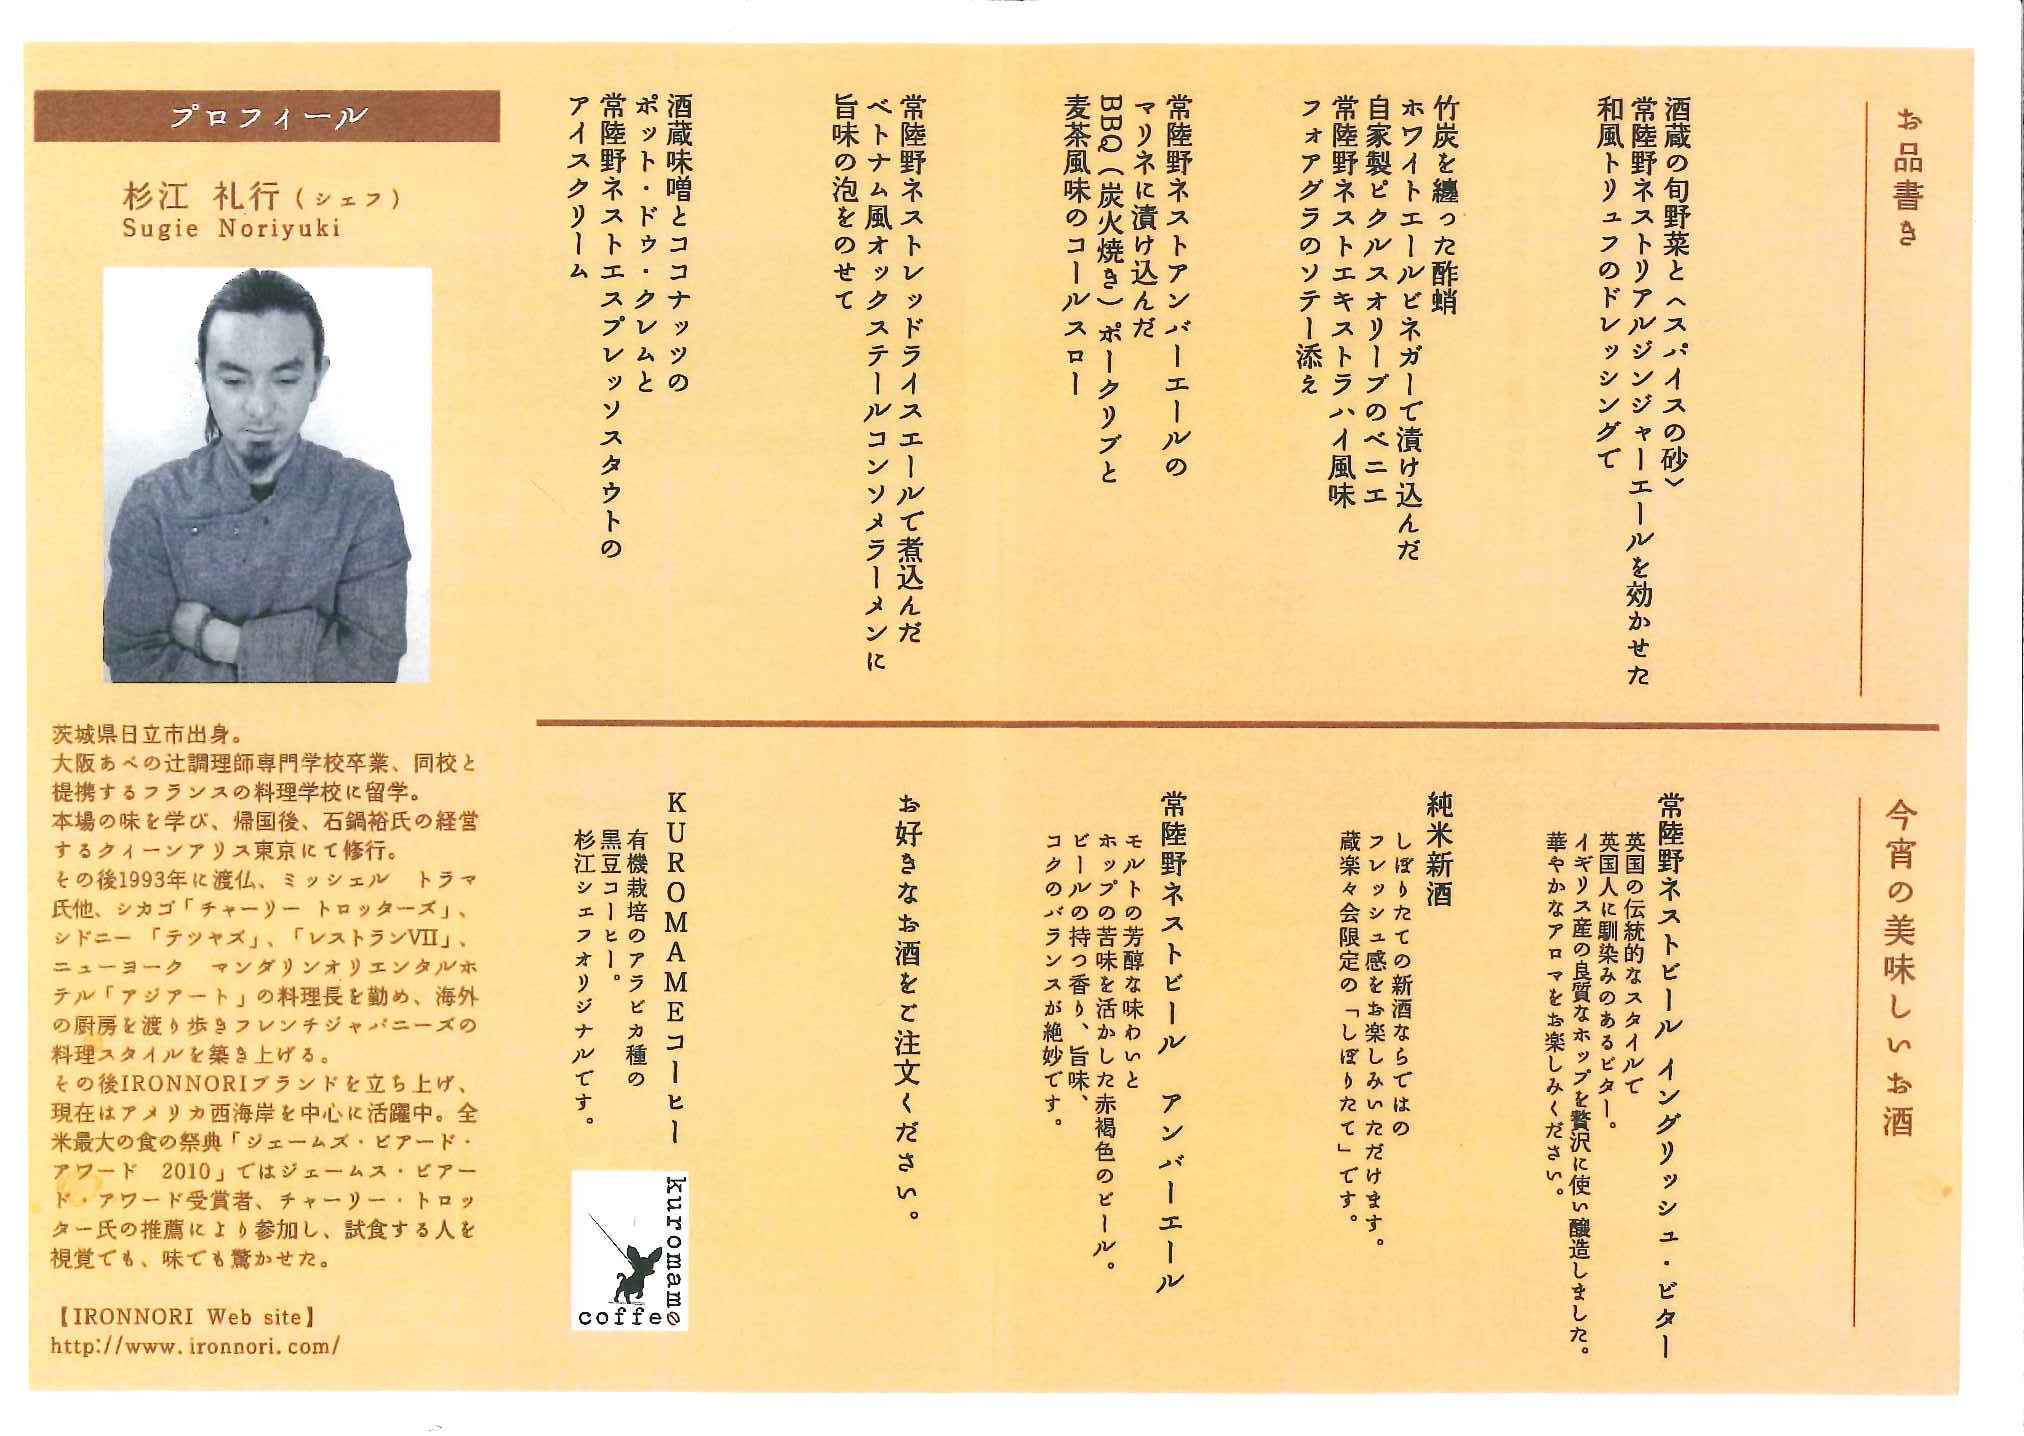 お品書き
酒蔵の旬野菜と〈スパイスの砂〉
常陸野ネストリアルジンジャーエールを効かせた
和風トリュフのドレッシングで
竹炭を纏った酢蛸
ホワイトエールビネガーで漬け込んだ
自家製ピクルスオリーブのベニエ
常陸野ネストエキストラハイ風味
フォアグラのソテー添え
常陸野ネストアンバーエールの
マリネに漬け込んだ
BBQ（炭火焼き）ポークリブと
麦茶風味のコールスロー
常陸野ネストレッドライスエールで煮込んだ
ベトナム風オックステールコンソメラーメンに
旨味の泡をのせて
酒蔵味噌とココナッツの
ポット・ドゥ・クレムと
常陸野ネストエスプレッソスタウトの
アイスクリーム
今宵の美味しいお酒
常陸野ネストビール イングリッシュ・ビター
英国の伝統的なスタイルで
英国人に馴染みのあるビター。
イギリス産の良質なホップを贅沢に使い醸造しました。
華やかなアロマをお楽しみください。
純米新酒
しぼりたての新酒ならではの
フレッシュ感をお楽しみいただけます。
蔵楽々会限定の「しぼりたて」です。
常陸野ネストビール アンバーエール
モルトの芳醇な味わいと
ホップの苦味を活かした赤褐色のビール。
ビールの持つ香り、旨味、
コクのバランスが絶妙です。
お好きなお酒をご注文ください。
KUROMAMEコーヒー
有機栽培のアラビカ種の
黒豆コーヒー。
杉江シェフオリジナルです。
kuromame
coffee
プロフィール
杉江 礼行（シェフ）
Sugie Noriyuki
茨城県日立市出身。
大阪あべの辻調理師専門学校卒業、同校と
提携するフランスの料理学校に留学。
本場の味を学び、帰国後、石鍋裕氏の経営
するクィーンアリス東京にて修行。
その後1993年に渡仏、ミッシェル トラマ
氏他、シカゴ「チャーリー トロッターズ」、
シドニー「テツヤズ」、「レストランⅦ」、
ニューヨーク マンダリンオリエンタルホ
テル「アジアート」の料理長を勤め、海外
の厨房を渡り歩きフレンチジャパニーズの
料理スタイルを築き上げる。
その後IRONNORIブランドを立ち上げ、
現在はアメリカ西海岸を中心に活躍中。全
米最大の食の祭典「ジェームズ・ビアード・
アワード 2010」ではジェームス・ビアー
ド・アワード受賞者、チャーリー・トロッ
ター氏の推薦により参加し、試食する人を
視覚でも、味でも驚かせた。
【IRONNORI Web site】
http://www.ironnori.com/